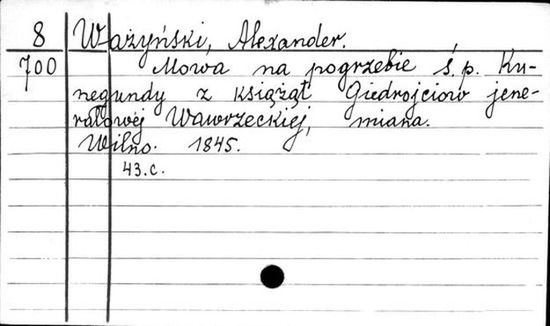 8 Ważyński, Alexander.
700 Mowa na pogrzebie ś.p. Ku-
negundy z książąt Giedrojciów jene-
rałowéj Wawrzeckiej, miana.
Wilno. 1845.
43.c.